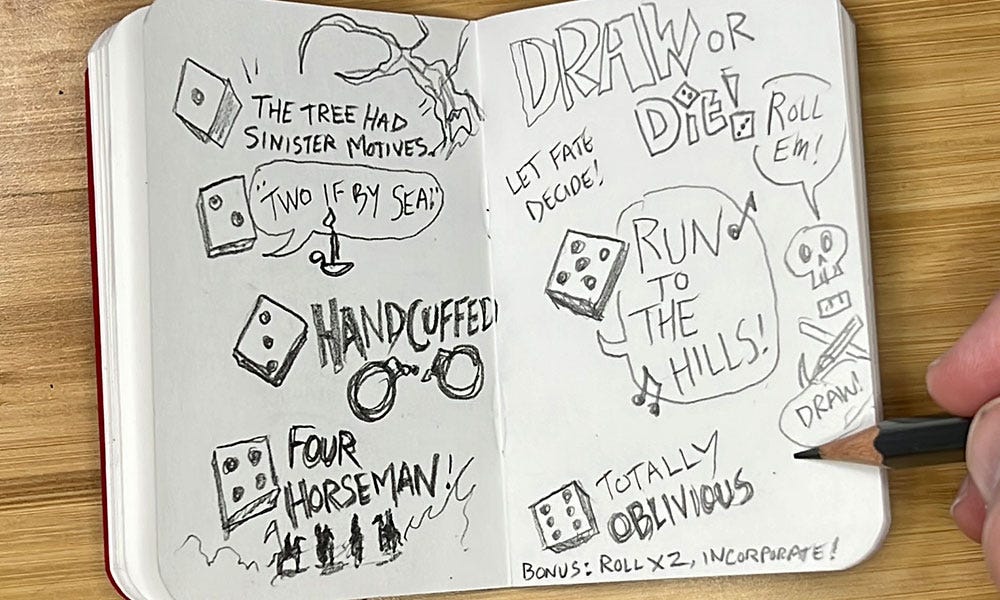 THE TREE HAD
SINISTER MOTIVES.
"TWO IF BY SEA!"
HANDCUFFED!
FOUR
HORSEMAN!
DRAW OR
DiE!
ROLL
EM!
LET FATE
DECIDE!
RUN
TO
THE
HILLS!
DRAW!
TOTALLY
OBLIVIOUS
BONUS: ROLL X 2, INCORPORATE!